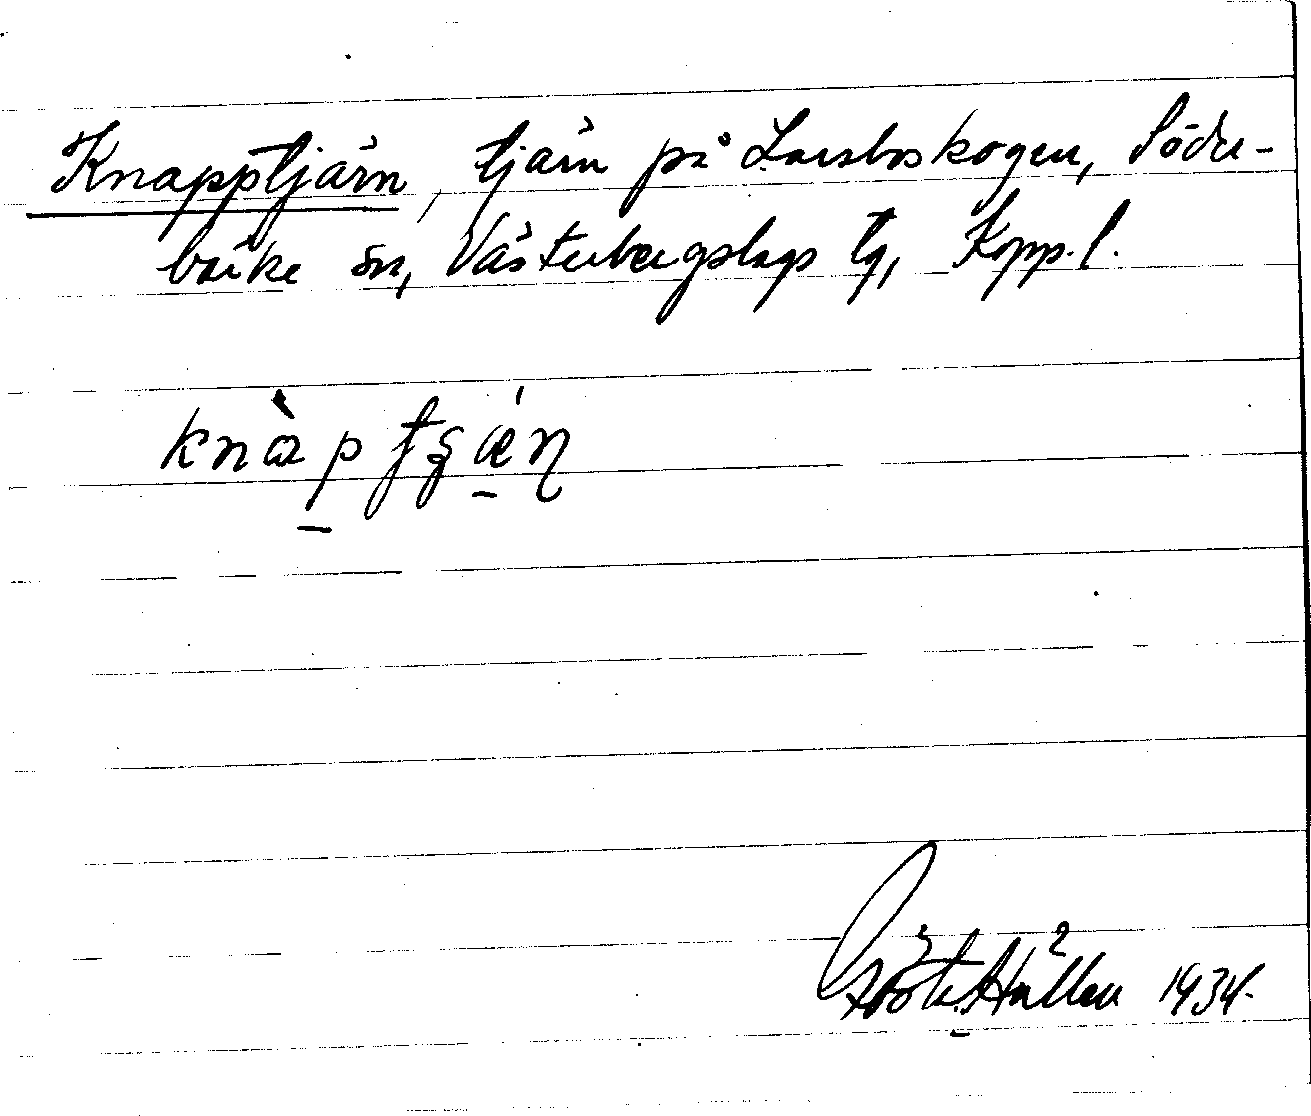 Knapptjärn, tjärn på Larsboskogen, Söder-
bärke sn, Västerbergslags tg, Kopp. l.
knàptʂǽn
Gösta Hållen 1934.